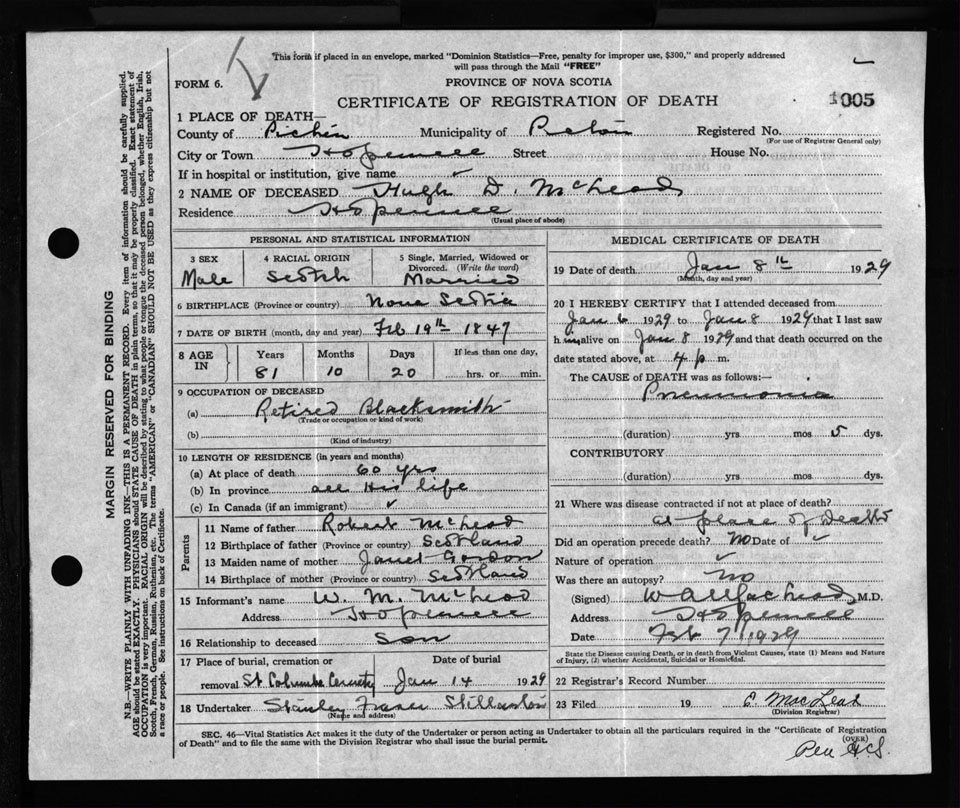 This form if placed in an envelope, marked "Dominion Statistics—Free, penalty for improper use, $300," and properly addressed
will pass through the Mail "FREE"
FORM 6.
PROVINCE OF NOVA SCOTIA
CERTIFICATE OF REGISTRATION OF DEATH
1005
1 PLACE OF DEATH—
County of Pictou Municipality of Pictou Registered No.
(For use of Registrar General only)
City or Town Hopewell Street House No.
If in hospital or institution, give name ✓
2 NAME OF DECEASED Hugh D. McLeod
Residence Hopewell
(Usual place of abode)
PERSONAL AND STATISTICAL INFORMATION
3 SEX 4 RACIAL ORIGIN 5 Single, Married, Widowed or Divorced. (Write the word)
Male Scotch Married
6 BIRTHPLACE (Province or country) Nova Scotia
7 DATE OF BIRTH (month, day and year) Feb 19th 1847
8 AGE IN Years Months Days If less than one day,
81 10 20 hrs. or min.
9 OCCUPATION OF DECEASED
(a) Retired Blacksmith
(Trade or occupation or kind of work)
(b)
(Kind of industry)
10 LENGTH OF RESIDENCE (in years and months)
(a) At place of death 60 yrs
(b) In province all his life
(c) In Canada (if an immigrant) ✓
Parents
11 Name of father Robert McLeod
12 Birthplace of father (Province or country) Scotland
13 Maiden name of mother Janet Gordon
14 Birthplace of mother (Province or country) Scotland
15 Informant's name W. M. McLeod
Address Hopewell
16 Relationship to deceased Son
17 Place of burial, cremation or removal Date of burial
St Columba Cemetry Jan 14 1929
18 Undertaker Stanley Fraser Stellarton
(Name and address)
MEDICAL CERTIFICATE OF DEATH
19 Date of death Jan 8th 1929
(Month, day and year)
20 I HEREBY CERTIFY that I attended deceased from
Jan 6 1929 to Jan 8 1929 that I last saw
him alive on Jan 8 1929 and that death occurred on the
date stated above, at 4 p m.
The CAUSE of DEATH was as follows:—
Pneumonia
(duration) yrs mos 5 dys.
CONTRIBUTORY
(duration) yrs mos dys.
21 Where was disease contracted if not at place of death?
at place of Death
Did an operation precede death? No Date of ✓
Nature of operation ✓
Was there an autopsy? No
(Signed) M.D.
Address Hopewell
Date Feb 7 1929
State the Disease causing Death, or in death from Violent Causes, state (1) Means and Nature
of Injury, (2) whether Accidental, Suicidal or Homicidal.
22 Registrar's Record Number
23 Filed 19 E. MacLeod
(Division Registrar)
SEC. 46—Vital Statistics Act makes it the duty of the Undertaker or person acting as Undertaker to obtain all the particulars required in the "Certificate of Registration
of Death" and to file the same with the Division Registrar who shall issue the burial permit.
(OVER)
MARGIN RESERVED FOR BINDING
N.B.—WRITE PLAINLY WITH UNFADING INK—THIS IS A PERMANENT RECORD. Every item of information should be carefully supplied.
AGE should be stated EXACTLY. PHYSICIANS should STATE CAUSE OF DEATH in plain terms, so that it may be properly classified. Exact statement of
OCCUPATION is very important. RACIAL ORIGIN will be described by stating to what people or tongue the deceased person belonged, whether English, Irish,
Scotch, French, German, Russian, Ruthenian, etc. The terms "AMERICAN" or "CANADIAN" SHOULD NOT BE USED as they express citizenship but not
a race or people. See instructions on back of Certificate.